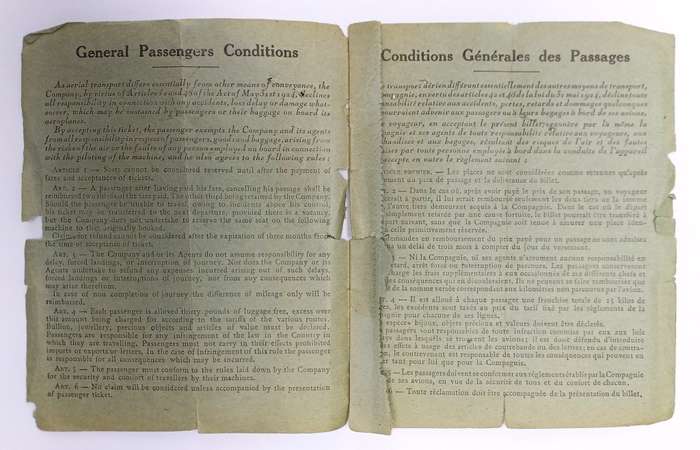 General Passengers Conditions
As aerial transport differs essentially from other means of conveyance, the
Company, by virtue of Articles 42 and 48 of the Act of May 31st 1924, declines
all responsibility in connection with any accidents, loss delay or damage what-
soever, which may be sustained by passengers or their baggage on board its
aeroplanes.
By accepting this ticket, the passenger exempts the Company and its agents
from all responsibility in respect of passengers, goods and baggage, arising from
the risks of the air or the faults of any persons employed on board in connection
with the piloting of the machine, and he also agrees to the following rules :
ARTICLE 1 — Seats cannot be considered reserved until after the payment of
fares and acceptances of tickets.
ART. 2 — A passenger after having paid his fare, cancelling his passage shall be
reimbursed two thirds of the fare paid. The other third being retained by the Company.
Should the passenger be unable to travel, owing to incidents above his control,
his ticket may be transferred to the next departure, provided there is a vacancy,
but the Company does not undertake to reserve the same seat on the following
machine to that originally booked.
Claims for refund cannot be considered after the expiration of three months from
the time of acceptation of ticket.
ART. 3 — The Company and/or its Agents do not assume responsibility for any
delay, forced landings, or interruption of journey. Not does the Company or its
Agents undertake to refund any expenses incurred arising out of such delays,
forced landings or interruptions of journey, nor from any consequences which
may arise therefrom.
In case of non completion of journey the difference of mileage only will be
reimbursed.
ART. 4 — Each passenger is allowed thirty pounds of luggage free, excess over
this amount being charged for according to the tariffs of the various routes.
Bullion, jewellery, precious objects and articles of value must be declared.
Passengers are responsible for any infringement of the law in the Country in
which they are travelling. Passengers must not carry in their effects prohibited
imports or exports or letters. In the case of infringement of this rule the passenger
is responsible for all consequences which may be incurred.
ART. 5 — The passenger must conform to the rules laid down by the Company
for the security and comfort of travellers by their machines.
ART. 6 — No claim will be considered unless accompanied by the presentation
of passenger ticket.
Conditions Générales des Passages
transport aérien différent essentiellement des autres moyens de transport,
pagnie, en vertu des articles 42 et 48 de la loi du 31 mai 1924, décline toute
nsabilité relative aux accidents, pertes, retards et dommages quelconques
pourraient advenir aux passagers ou à leurs bagages à bord de ses avions.
voyageur, en acceptant le présent billet, exonère par là même la
pagnie et ses agents de toute responsabilité relative aux voyageurs, aux
handises et aux bagages, résultant des risques de l'air et des fautes
ises par toute personne employée à bord dans la conduite de l'appareil
accepte, en outre le règlement suivant :
ARTICLE PREMIER. — Les places ne sont considérées comme retenues qu'après
ment du prix de passage et la délivrance du billet.
2 — Dans le cas où, après avoir payé le prix de son passage, un voyageur
erait à partir, il lui serait remboursé seulement les deux tiers de la somme
l'autre tiers demeurant acquis à la Compagnie. Dans le cas où le départ
simplement retardé par une cause fortuite, le billet pourrait être transféré à
part suivant, sans que la Compagnie soit tenue à assurer une place iden-
celle primitivement réservée.
demandes en remboursement du prix payé pour un passage ne sont admises
un délai de trois mois à compter du jour du versement.
3 — Ni la Compagnie, ni ses agents n'assument aucune responsabilité en
etard, arrêt forcé ou interruption de parcours. Les passagers conservent
charge les frais supplémentaires à eux occasionnés par ces différents chefs et
es conséquences qui en découleraient. Ils ne peuvent se faire rembourser que
de la somme versée correspondant aux kilomètres non parcourus par l'avion.
4 — Il est alloué à chaque passager une franchise totale de 15 kilos de
ges, les excédents sont taxés au prix du tarif fixé par les règlements de la
gnie pour chacune de ses lignes.
espèces, bijoux, objets précieux et valeurs doivent être déclarés.
passagers sont responsables de toute infraction commise par eux aux lois
ays dans lesquels se trouvent les avions; il est donc défendu d'introduire
es effets à usage des articles de contrebande ou des lettres; en cas de contra-
, le contrevenant est responsable de toutes les conséquences qui peuvent en
er tant pour lui que pour la Compagnie.
5 — Les passagers doivent se conformer aux règlements établis par la Compagnie
de ses avions, en vue de la sécurité de tous et du confort de chacun.
6 — Toute réclamation doit être accompagnée de la présentation du billet.